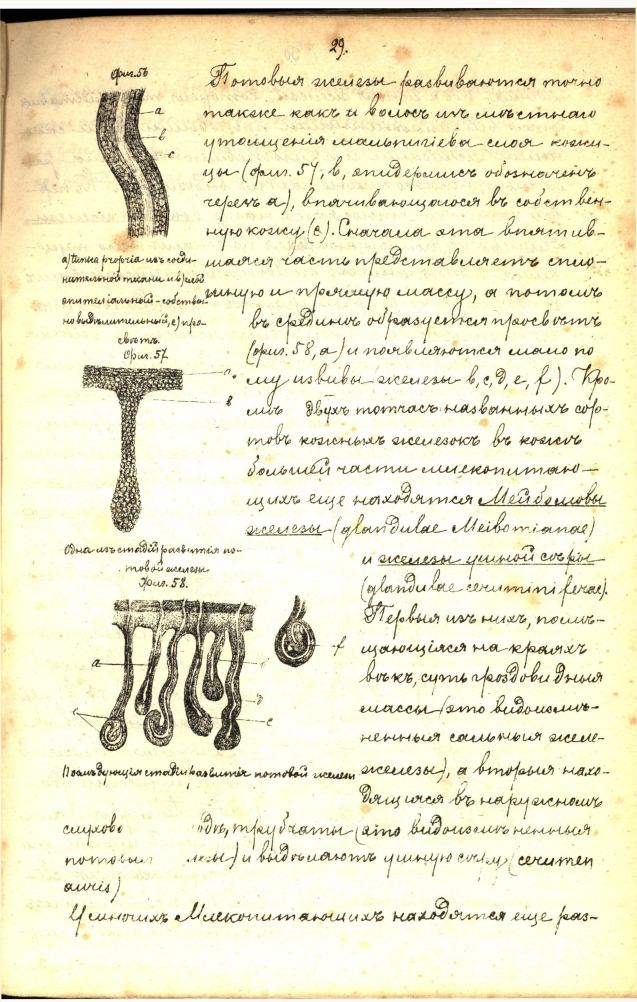 29.
Фиг. 56
a
в
c
а) tunica propria изъ соеди-
нительной ткани и в) слой
эпителіальный - собствен-
но выдѣлительный, с) про-
свѣтъ.
Фиг. 57
a
в
Одна изъ стадій развитія по-
товой железы
Фиг. 58.
a
f
d
e
c
Послѣдующія стадіи развитія потовой железы
Потовыя железы развиваются точно
также какъ и волосъ изъ мѣстнаго
утолщенія мальпигіева слоя кожи-
цы (фиг. 57, в, эпидермисъ обозначенъ
черезъ а), впячивающагося въ собствен-
ную кожу (с). Сначала эта впятив-
шаяся часть представляетъ спло-
шную и прямую массу, а потомъ
въ срединѣ образуется просвѣтъ
(фиг. 58, а) и появляются мало по
малу извивы железы в, с, d, e, f). Кро-
мѣ двухъ тотчасъ названныхъ сор-
товъ кожныхъ железокъ въ кожѣ
большей части млекопитаю-
щихъ еще находятся Мейбомовы
железы (glandulae Meibomianae)
и железы ушной сѣры
(glandulae cerumini ferae).
Первыя изъ нихъ, помѣ-
щающіяся на краяхъ
вѣкъ, суть гроздовидныя
массы (это видоизмѣ-
ненныя сальныя желе-
железы), а вторыя нахо-
дящіяся въ наружномъ
слухово трубчаты (это видоизмѣненныя
потовыя лезы) и выдѣляютъ ушную сѣру (cerumen
auris)
У многихъ Млекопитающихъ находятся еще раз-